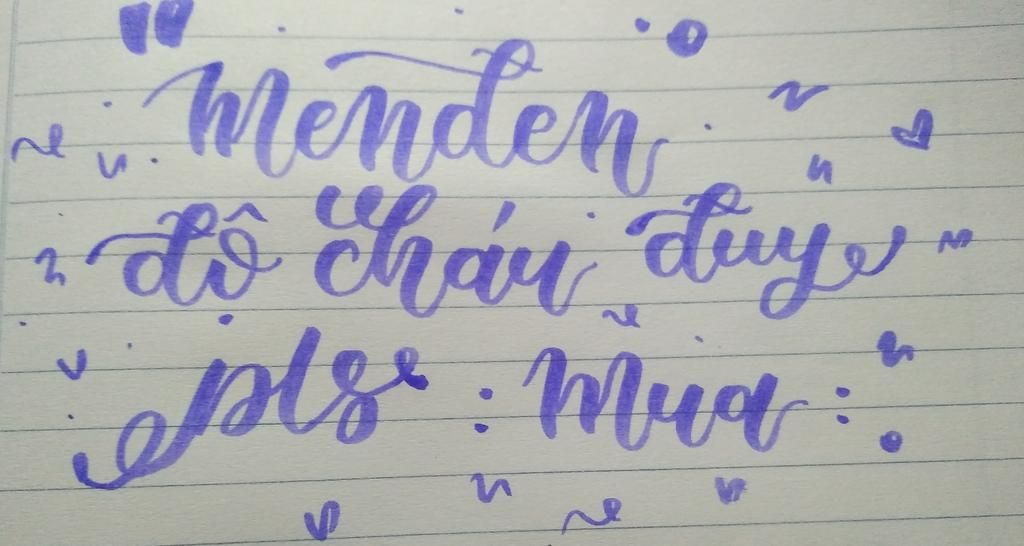 "Menđen
đô cháu đuy
pls : Mua :